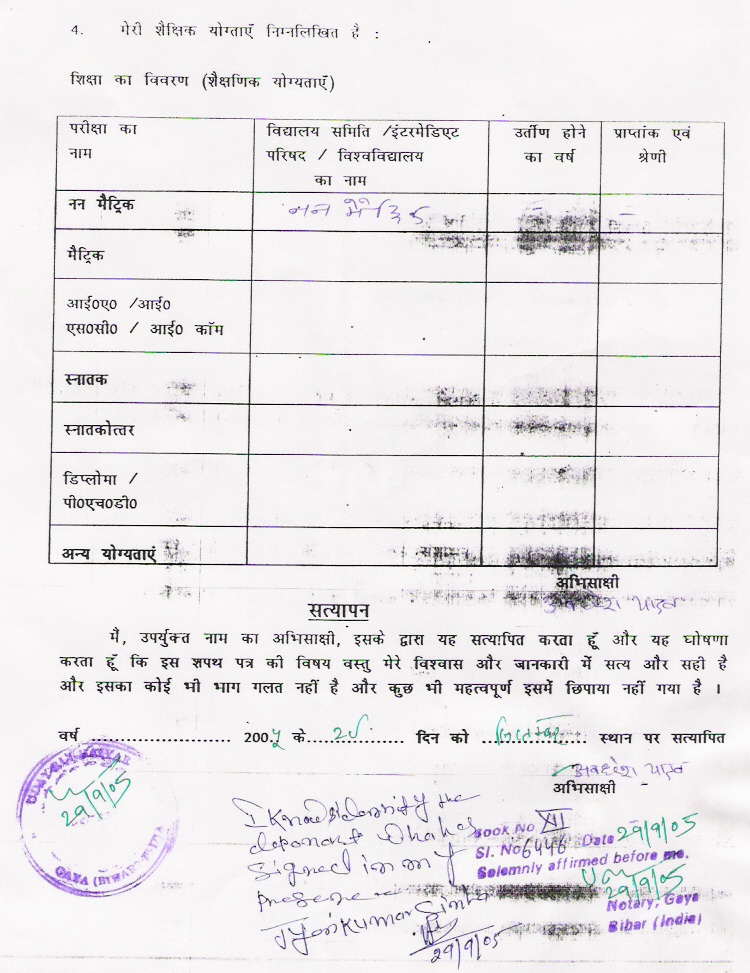 4. मेरी शैक्षिक योग्ताएँ निम्नलिखित है :
शिक्षा का विवरण (शैक्षणिक योग्यताएँ)
परीक्षा का नाम
विद्यालय समिति /इंटरमेडिएट परिषद / विश्वविद्यालय का नाम
उर्तीण होने का वर्ष
प्राप्तांक एवं श्रेणी
नन मैट्रिक नन मैट्रिक – –
मैट्रिक
आई०ए० /आई०
एस०सी० / आई० कॉम
स्नातक
स्नातकोत्तर
डिप्लोमा /
पी०एच०डी०
अन्य योग्यताएं
अभिसाक्षी
अवधेश यादव
सत्यापन
मै, उपर्युक्त नाम का अभिसाक्षी, इसके द्वारा यह सत्यापित करता हूँ और यह घोषणा
करता हूँ कि इस शपथ पत्र की विषय वस्तु मेरे विश्वास और जानकारी में सत्य और सही है
और इसका कोई भी भाग गलत नहीं है और कुछ भी महत्वपूर्ण इसमें छिपाया नहीं गया है ।
वर्ष ....................... 200५ के................ दिन को ................. स्थान पर सत्यापित
अवधेश यादव
अभिसाक्षी
29/9/05
GAYA (BIHAR)
I know & identify the
deponent who has
signed in my
presence
Kumar Sinha
29/9/05
Book No XII
Sl. No 6446 Date 29/9/05
Solemnly affirmed before me.
29/9/05
Notary, Gaya
Bihar (India)